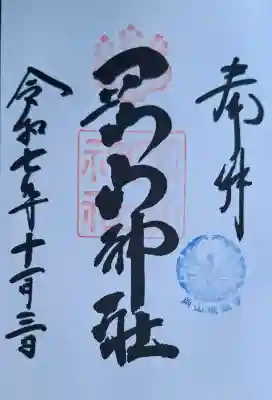 奉拝
岡山神社
令和七年十一月三日